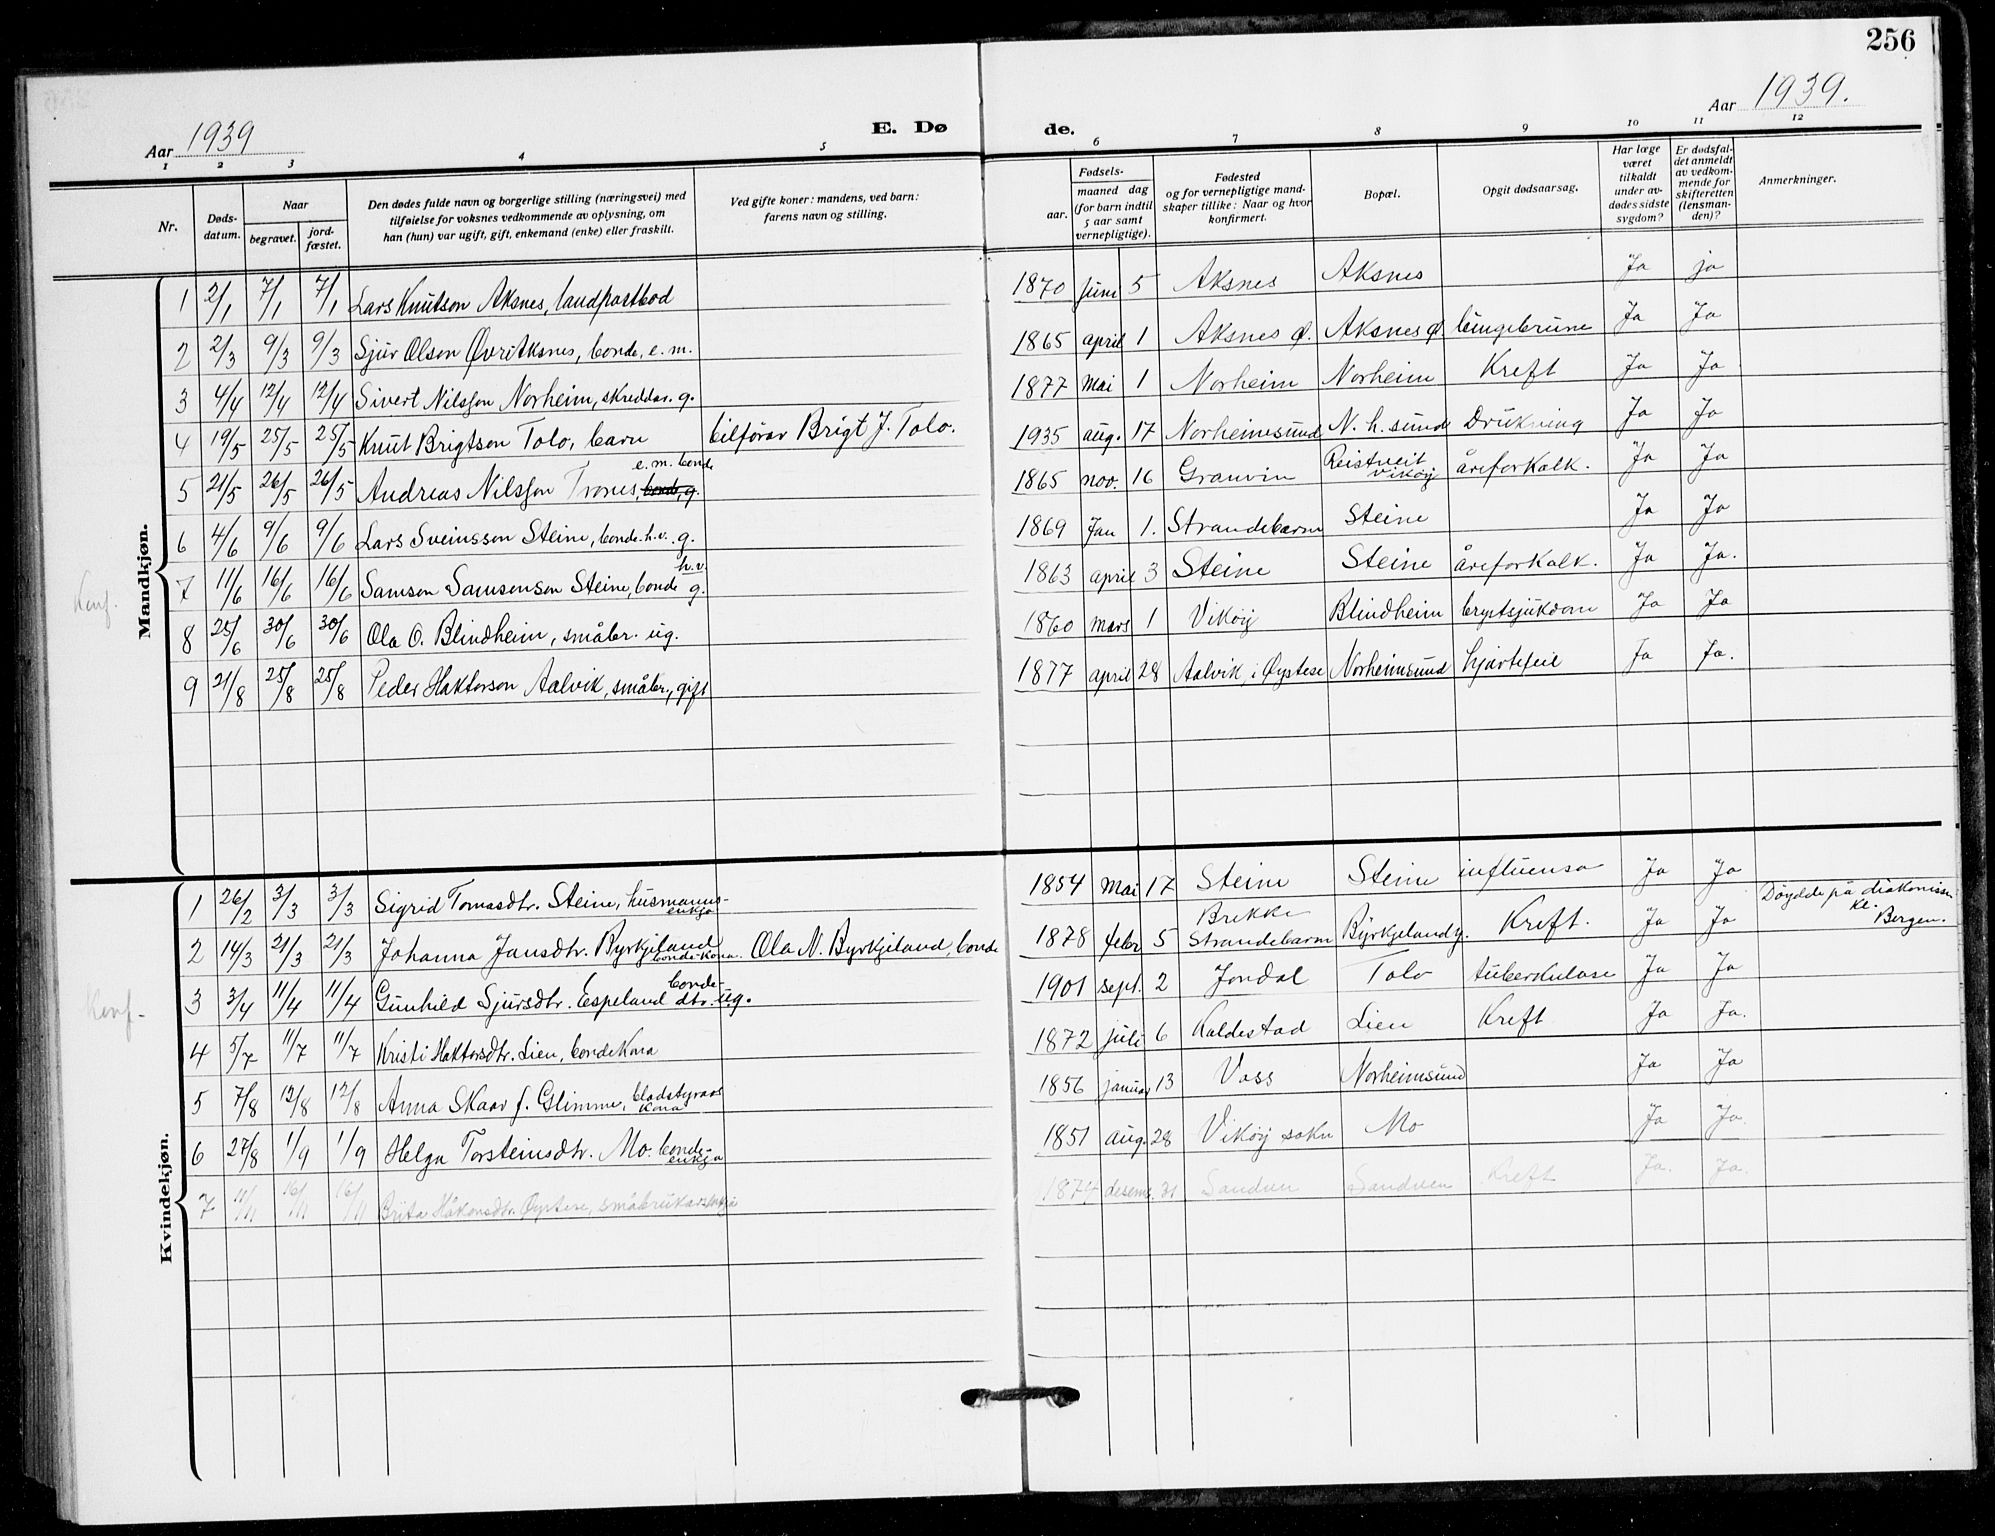 256
Aar 1939
E. Dø
de.
Aar 1939.
1 2 3 4 5
6 7 8 9 10 11 12
Nr.
Døds-
datum.
Naar
begravet.
jord-
fæstet.
Den dødes fulde navn og borgerlige stilling (næringsvei) med
tilføielse for voksnes vedkommende av oplysning, om
han (hun) var ugift, gift, enkemand (enke) eller fraskilt.
Ved gifte koner: mandens, ved barn:
farens navn og stilling.
Fødsels-
aar.
maaned dag
(for barn indtil
5 aar samt
vernepligtige).
Fødested
og for vernepligtige mand-
skaper tillike: Naar og hvor
konfirmert.
Bopæl.
Opgit dødsaarsag.
Har læge
været
tilkaldt
under av-
dødes sidste
sygdom?
Er dødsfal-
det anmeldt
av vedkom-
mende for
skifteretten
(lensman-
den)?
Anmerkninger.
Mandkjøn.
1 2/1 7/1 7/1 Lars Knutson Aksnes, landpostbod 1870 juni 5 Aksnes Aksnes Ja ja
2 2/3 9/3 9/3 Sjur Olson Øvre Aksnes, bonde, e. m. 1865 april 1 Aksnes ø. Aksnes ø. lungebrune Ja Ja
3 4/4 12/4 12/4 Sivert Nilsson Norheim, skreddar. g. 1877 Mai 1 Norheim Norheim Kreft Ja Ja
4 19/5 25/5 25/5 Knut Brigtson Tolo, barn bilførar Brigt J. Tolo. 1935 aug. 17 Norheimsund N. h. sund Drukning Ja Ja
e. m. bonde
5 21/5 26/5 26/5 Andreas Nilsson Trones, bonde, g. 1865 nov. 16 Granvin Reistveit Vikøy åreforkalk. Ja Ja
6 4/6 9/6 9/6 Lars Sveinsson Steine, bonde. h.v. g. 1869 Jan 1. Strandebarm Steine Ja Ja
h.v.
Konf.
7 11/6 16/6 16/6 Samson Samsonson Steine, bonde g. 1863 april 3 Steine Steine åreforkalk. Ja Ja.
8 25/6 30/6 30/6 Ola O. Blindheim, småbr. ug. 1860 mars 1 Vikøy Blindheim brystsjukdom Ja Ja
9 21/8 25/8 25/8 Peder Haktorson Aalvik, småbr., gift 1877 april 28 Aalvik, i Øystese Norheimsund hjartefeil Ja Ja.
Kvindekjøn.
1 26/2 3/3 3/3 Sigrid Tomasdtr. Steine, husmanns-
enkja 1854 Mai 17 Steine Steine influensa Ja Ja
2 14/3 21/3 21/3 Johanna Jansdtr. Byrkjeland
bonde-kona. Ola N. Byrkjeland, bonde 1878 febr 5 Brekke
Strandebarm Byrkjeland y. Kreft. Ja Ja Døydde på diakonisse
Bergen.
Konf.
3 3/4 11/4 11/4 Gunhild Sjursdtr. Espeland bonde-
dtr. ug. 1901 sept. 2 Jondal Tolo tuberkulose Ja Ja
4 5/7 11/7 11/7 Kristi Haktorsdtr. Lien, bondekona 1872 juli 6 Kaldestad Lien Kreft Ja Ja.
5 7/8 12/8 12/8 Anna Skaar f. Glimme, bladstyrars
kona 1856 januar 13 Voss Norheimsund Ja Ja
6 27/8 1/9 1/9 Helga Torsteinsdtr. Mo. bonde-
enkja 1851 aug. 28 Vikøy sokn Mo Ja Ja
7 11/11 16/11 16/11 Brita Håkonsdtr. Øystese, småbrukarsenkja 1874 desem. 31 Sandven Sandven Kreft Ja. Ja.